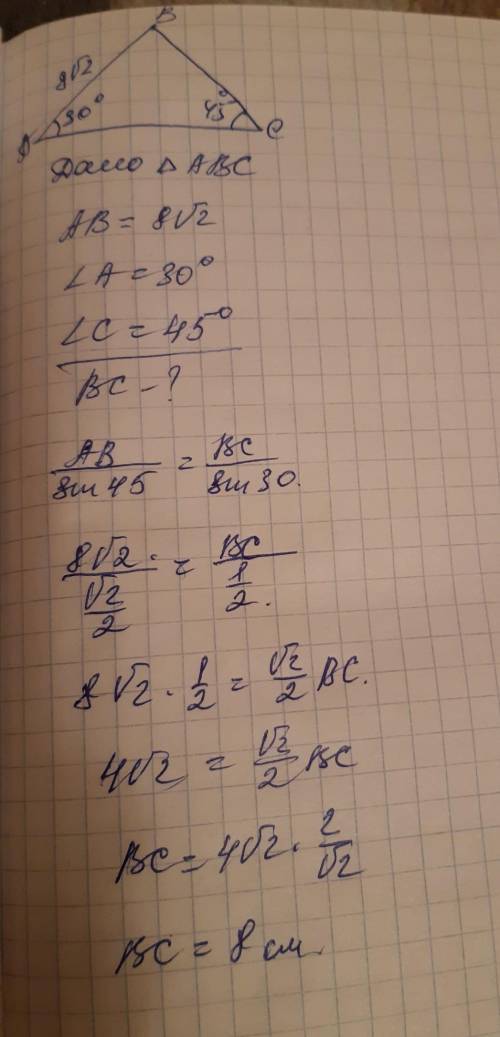 B
8√2
30°
45°
A
C
Дано △ ABC
AB = 8√2
∠A = 30°
∠C = 45°
BC - ?
AB/sin 45 = BC/sin 30.
8√2/(√2/2) = BC/(1/2).
8√2 · 1/2 = √2/2 BC.
4√2 = √2/2 BC
BC = 4√2 · 2/√2
BC = 8 см.